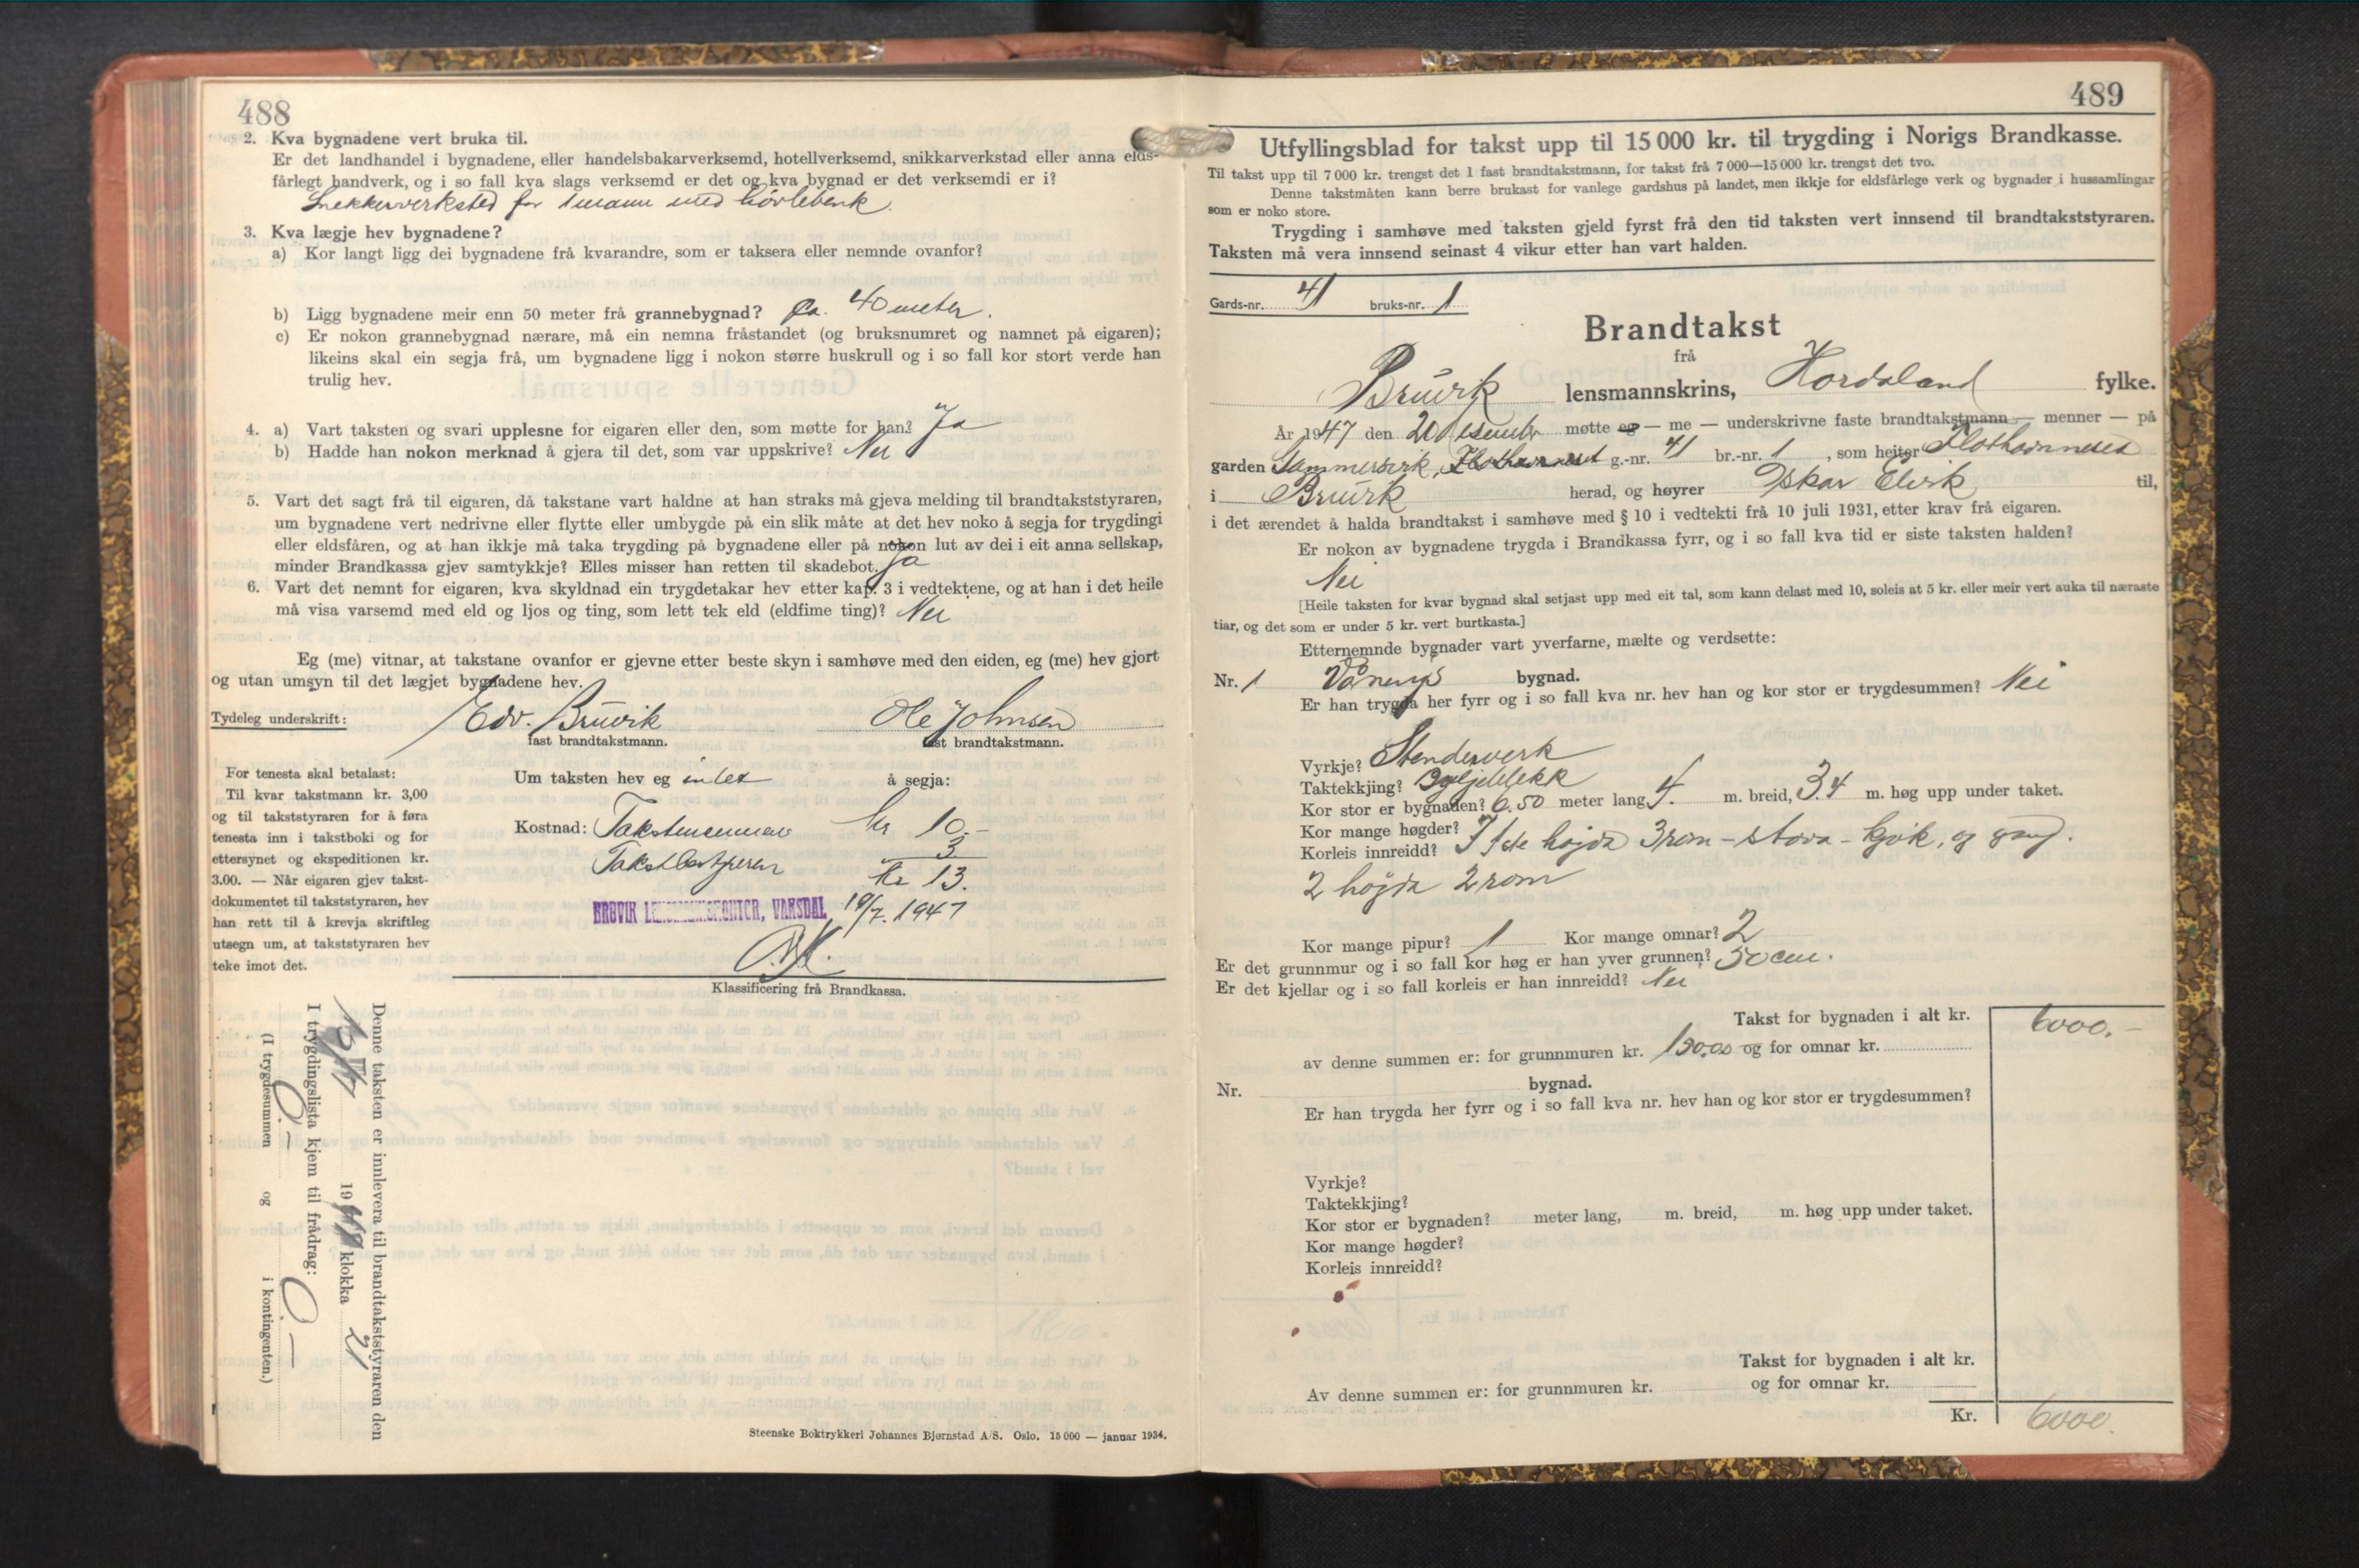 488
2. Kva bygnadene vert bruka til.
Er det landhandel i bygnadene, eller handelsbakarverksemd, hotellverksemd, snikkarverkstad eller anna elds-
fårlegt handverk, og i so fall kva slags verksemd er det og kva bygnad er det verksemdi er i?
Snekkerverksted for 1 mann med hövlebenk.
3. Kva lægje hev bygnadene?
a) Kor langt ligg dei bygnadene frå kvarandre, som er taksera eller nemnde ovanfor?
b) Ligg bygnadene meir enn 50 meter frå grannebygnad? ca. 40 meter.
c) Er nokon grannebygnad nærare, må ein nemna fråstandet (og bruksnumret og namnet på eigaren);
likeins skal ein segja frå, um bygnadene ligg i nokon større huskrull og i so fall kor stort verde han
trulig hev.
4. a) Vart taksten og svari upplesne for eigaren eller den, som møtte for han? Ja
b) Hadde han nokon merknad å gjera til det, som var uppskrive? Nei
5. Vart det sagt frå til eigaren, då takstane vart haldne at han straks må gjeva melding til brandtakststyraren,
um bygnadene vert nedrivne eller flytte eller umbygde på ein slik måte at det hev noko å segja for trygdingi
eller eldsfåren, og at han ikkje må taka trygding på bygnadene eller på nokon lut av dei i eit anna sellskap,
minder Brandkassa gjev samtykkje? Elles misser han retten til skadebot. Ja
6. Vart det nemnt for eigaren, kva skyldnad ein trygdetakar hev etter kap. 3 i vedtektene, og at han i det heile
må visa varsemd med eld og ljos og ting, som lett tek eld (eldfime ting)? Nei
Eg (me) vitnar, at takstane ovanfor er gjevne etter beste skyn i samhøve med den eiden, eg (me) hev gjort
og utan umsyn til det lægjet bygnadene hev.
Tydeleg underskrift: Edv. Bruvik Ole Johnsen
fast brandtakstmann. fast brandtakstmann.
For tenesta skal betalast:
Til kvar takstmann kr. 3,00
og til takststyraren for å føra
tenesta inn i takstboki og for
ettersynet og ekspeditionen kr.
3.00. — Når eigaren gjev takst-
dokumentet til takststyraren, hev
han rett til å krevja skriftleg
utsegn um, at takststyraren hev
teke imot det.
Um taksten hev eg intet å segja:
Kostnad: Takstmennene kr 10,-
3
kr 13.
BRUVIK LENSMANNSKONTOR, VAKSDAL 19/7. 1947
Klassificering frå Brandkassa.
Denne taksten er innlevera til brandtakststyraren den
19 klokka 21
I trygdingslista kjem til frådrag:
(I trygdesummen 0,- og 0,- i kontingenten.)
Steenske Boktrykkeri Johannes Bjørnstad A/S. Oslo. 15 000 — januar 1934.
489
Utfyllingsblad for takst upp til 15 000 kr. til trygding i Norigs Brandkasse.
Til takst upp til 7 000 kr. trengst det 1 fast brandtakstmann, for takst frå 7 000—15 000 kr. trengst det tvo.
Denne takstmåten kann berre brukast for vanlege gardshus på landet, men ikkje for eldsfårlege verk og bygnader i hussamlingar
som er noko store.
Trygding i samhøve med taksten gjeld fyrst frå den tid taksten vert innsend til brandtakststyraren.
Taksten må vera innsend seinast 4 vikur etter han vart halden.
Gards-nr. 41 bruks-nr. 1
Brandtakst
frå
Bruvik lensmannskrins, Hordaland fylke.
År 1947 den møtte eg — me — underskrivne faste brandtakstmann — menner — på
garden g.-nr. 41 br.-nr. 1, som heiter
i Bruvik herad, og høyrer Oskar til,
i det ærendet å halda brandtakst i samhøve med § 10 i vedtekti frå 10 juli 1931, etter krav frå eigaren.
Er nokon av bygnadene trygda i Brandkassa fyrr, og i so fall kva tid er siste taksten halden?
Nei
[Heile taksten for kvar bygnad skal setjast upp med eit tal, som kann delast med 10, soleis at 5 kr. eller meir vert auka til næraste
tiar, og det som er under 5 kr. vert burtkasta.]
Etternemnde bygnader vart yverfarne, mælte og verdsette:
Nr. 1 bygnad.
Er han trygda her fyrr og i so fall kva nr. hev han og kor stor er trygdesummen? Nei
Vyrkje? Stenderverk
Taktekkjing? Bølgjeblekk
Kor stor er bygnaden? 6.50 meter lang, 4. m. breid, 3.4 m. høg upp under taket.
Kor mange høgder?
Korleis innreidd? I 1ste högda 3 rom - stova - kjök, og gang.
2 högda 2 rom
Kor mange pipur? 1 Kor mange omnar? 2
Er det grunnmur og i so fall kor høg er han yver grunnen? 50 cm.
Er det kjellar og i so fall korleis er han innreidd? Nei
Takst for bygnaden i alt kr. 6000.-
av denne summen er: for grunnmuren kr. og for omnar kr.
Nr. bygnad.
Er han trygda her fyrr og i so fall kva nr. hev han og kor stor er trygdesummen?
Vyrkje?
Taktekkjing?
Kor stor er bygnaden? meter lang, m. breid, m. høg upp under taket.
Kor mange høgder?
Korleis innreidd?
Takst for bygnaden i alt kr.
Av denne summen er: for grunnmuren kr. og for omnar kr.
Kr. 6000.